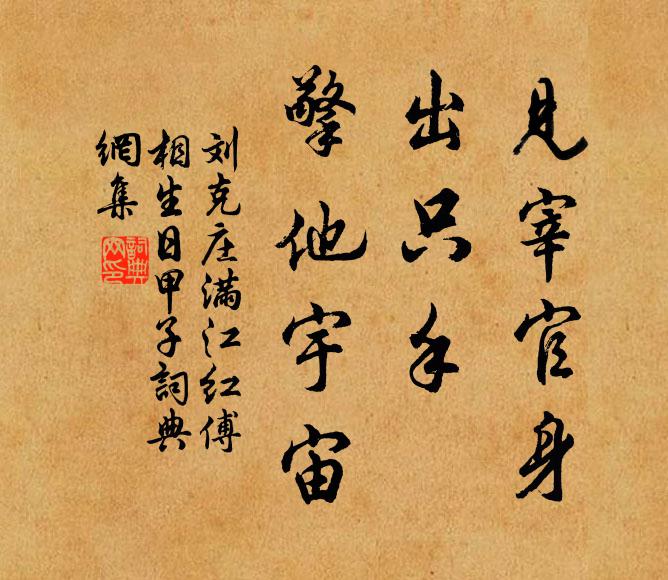 見宰官身
出只手
擎他宇宙
刘克庄满江红傅
相生日甲子詞典
網集
詞典
网印